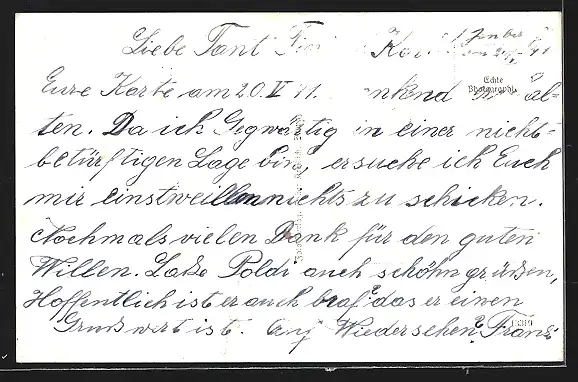 Liebe Tant
Eure Karte am 20. V 41. dankend erhal-
ten. Da ich Gegwärtig in einer nicht-
betürftigen Lage bin, ersuche ich Euch
mir einstweillen nichts zu schicken.
Nochmals vielen Dank für den guten
Willen. Laße Poldi auch schöhn grüßen,
Hoffentlich ist er auch braf? das er einen
Gruß wert ist. Auf Wiedersehen? Franz
Echte
Photographie